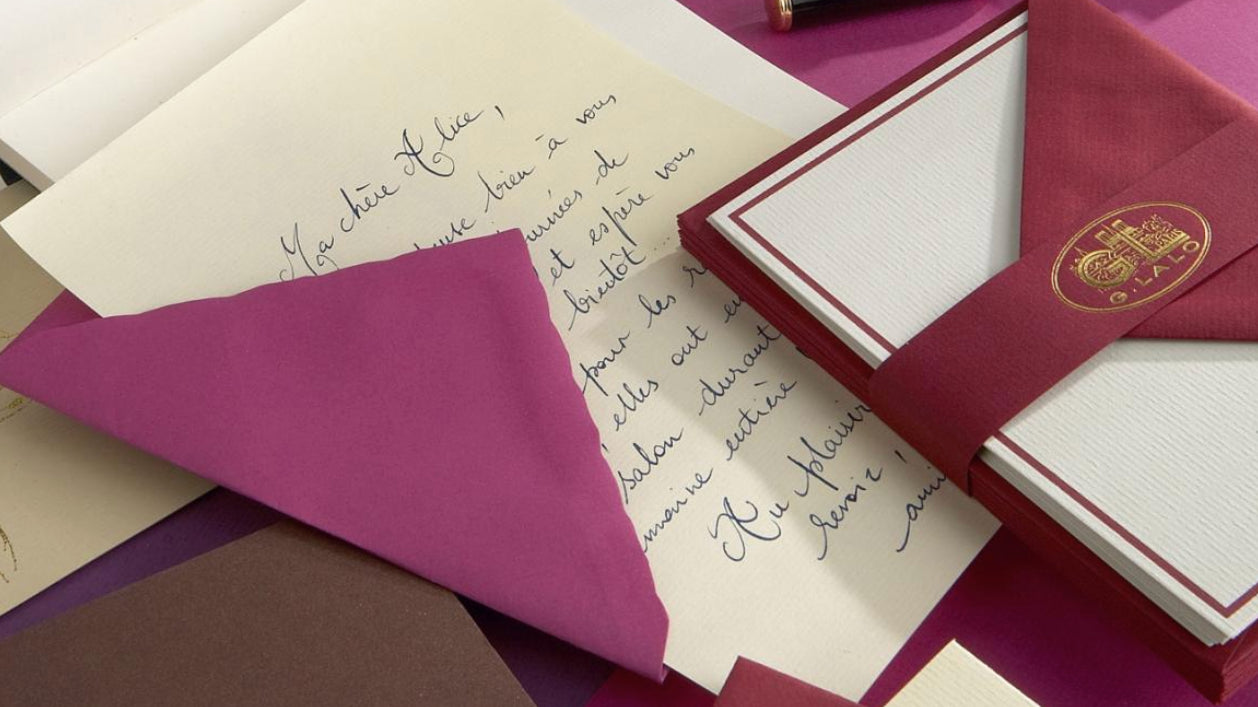 Ma chère Alice,
bien à vous
de
et espère vous
bientôt ...
pour les
elles ont
salon durant
entière
Au plaisir
revoir !
G. LALO